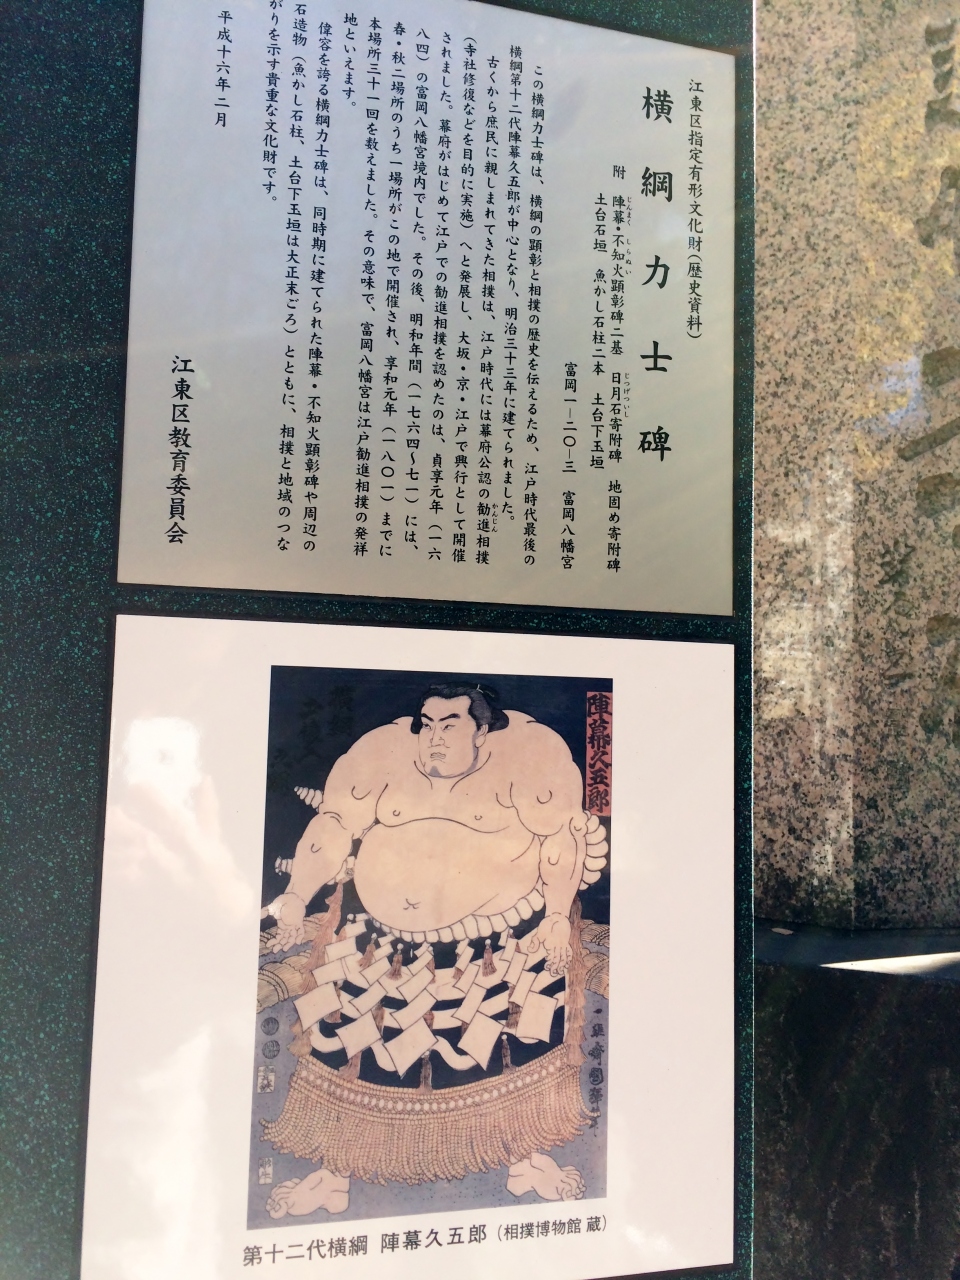 江東区指定有形文化財(歴史資料)
横綱力士碑
附 陣幕・不知火顕彰碑二基 日月石寄附碑 地固め寄附碑
じんまく しらぬい じつげついし
土台石垣 魚がし石柱二本 土台下玉垣
富岡一―二〇―三 富岡八幡宮
この横綱力士碑は、横綱の顕彰と相撲の歴史を伝えるため、江戸時代最後の
横綱第十二代陣幕久五郎が中心となり、明治三十三年に建てられました。
古くから庶民に親しまれてきた相撲は、江戸時代には幕府公認の勧進相撲
かんじん
(寺社修復などを目的に実施)へと発展し、大坂・京・江戸で興行として開催
されました。幕府がはじめて江戸での勧進相撲を認めたのは、貞享元年(一六
八四)の富岡八幡宮境内でした。その後、明和年間(一七六四〜七一)には、
春・秋二場所のうち一場所がこの地で開催され、享和元年(一八〇一)までに
本場所三十一回を数えました。その意味で、富岡八幡宮は江戸勧進相撲の発祥
地といえます。
偉容を誇る横綱力士碑は、同時期に建てられた陣幕・不知火顕彰碑や周辺の
石造物(魚がし石柱、土台下玉垣は大正末ごろ)とともに、相撲と地域のつな
がりを示す貴重な文化財です。
平成十六年二月
江東区教育委員会
陣幕久五郎
第十二代横綱 陣幕久五郎(相撲博物館 蔵)